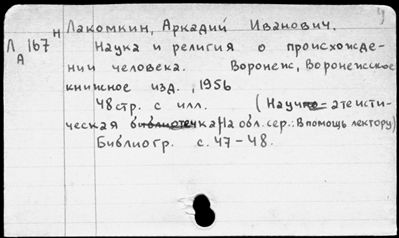 н Лакомкин, Аркадий Иванович.
Л 167 Наука и религия о происхожде-
А нии человека. Воронеж, Воронежское
книжное изд., 1956
48 стр. с илл. (Научно-атеисти-
ческая библиотечка) На обл. сер.: В помощь лектору)
Библиогр. с. 47-48.